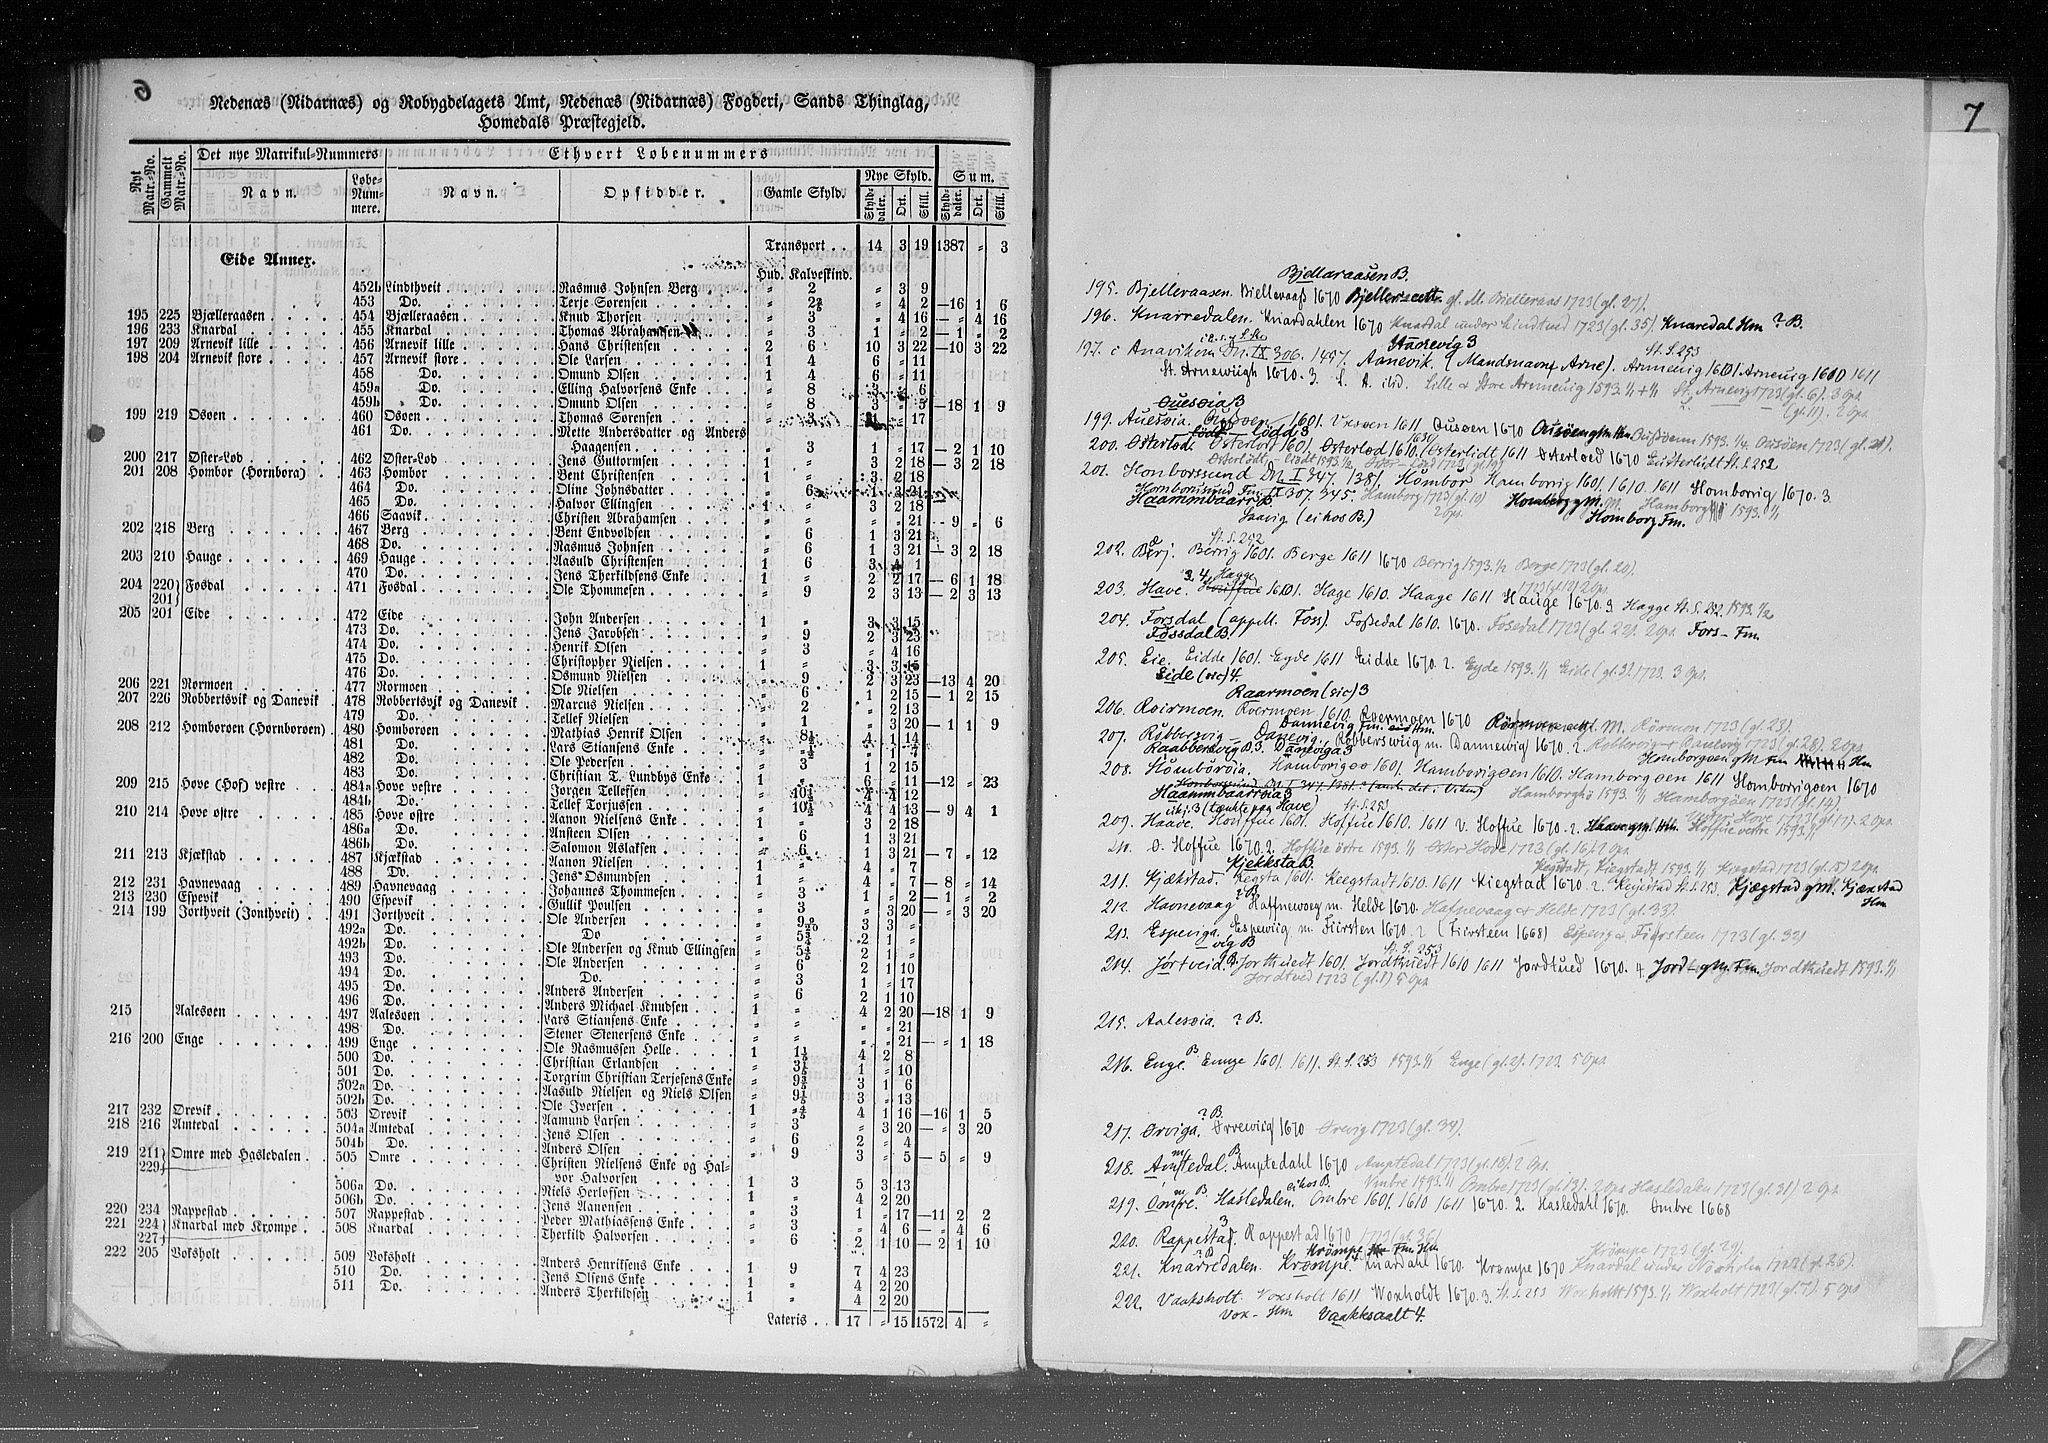 6
Nedenæs (Nidarnæs) og Robygdelagets Amt, Nedenæs (Nidarnæs) Fogderi, Sands Thinglag,
Homedals Præstegjeld.
Nyt Matr.-No. Gammelt Matr.-No. Det nye Matrikul-Nummers Ethvert Løbenummers
Navn. Løbe-Nummere. Navn. Opsidder. Gamle Skyld. Nye Skyld. Sum.
Skylddaler. Ort. Skill. Skylddaler. Ort. Skill.
Transport . . 14 3 19 1387 " 3
Eide Annex.
Hud. Kalveskind.
452b Lindthveit Rasmus Johnsen Berg " 2 " 3 9
453 Do. Terje Sørensen " " 4 2 —16 1 6
195 225 Bjælleraasen 454 Bjælleraasen Knud Thorsen " 3 " 4 16 — " 4 16
196 233 Knardal 455 Knardal Thomas Abrahamsen " 3 1 " 2 — 1 " 2
197 209 Arnevik lille 456 Arnevik lille Hans Christensen 2 6 10 3 22 —10 3 22
198 204 Arnevik store 457 Arnevik store Ole Larsen 1 4 6 " 11
458 Do. Omund Olsen 1 4 6 " 11
459a Do. Elling Halvorsens Enke " 8 3 " 6
459b Do. Omund Olsen " 8 3 " 5 —18 1 9
199 219 Osøen 460 Osøen Thomas Sørensen " 3 1 " 17
461 Do. Mette Andersdatter og Anders
Haagensen " 3 1 " 17 — 2 1 10
200 217 Øster-Lod 462 Øster-Lod Jens Guttormsen 1 " 3 2 18 — 3 2 18
201 208 Hombor (Hornbora) 463 Hombor Bent Christensen 1 " 3 2 18
464 Do. Oline Johnsdatter " 6 1 3 21
465 Do. Halvor Ellingsen 1 " 3 2 18
466 Saavik Christen Abrahamsen " " " " 21 — 9 " 6
202 218 Berg 467 Berg Bent Endvoldsen " 6 1 3 21
468 Do. Rasmus Johnsen " 6 1 3 21 — 3 2 18
203 210 Hauge 469 Hauge Aasuld Christensen 1 6 3 4 1
470 Do. Jens Therkildsens Enke 1 " 2 2 17 — 6 1 18
204 220 201 Fosdal 471 Fosdal Ole Thommesen " 9 2 3 13 — 2 3 13
205 201 Eide 472 Eide John Andersen 1 " 3 3 15
473 Do. Jens Jacobsen " 9 2 3 23
474 Do. Henrik Olsen " 3 " 4 16
475 Do. Christopher Nielsen 1 " 3 3 15
476 Do. Osmund Nielsen " 9 2 3 23 —13 4 20
206 221 Rormoen 477 Rormoen Ole Nielsen " 6 1 2 15 — 1 2 15
207 226 Robbertsvik og Danevik 478 Robbertsvik og Danevik Marcus Nielsen " 2 " 2 13
479 Do. Tellef Nielsen " 1 " 3 20 — 1 1 9
208 212 Homborøen (Hornborøen) 480 Homborøen Mathias Henrik Olsen " 8½ 4 1 14
481 Do. Lars Stiansens Enke " " 1 2 7
482 Do. Ole Pedersen " 3 1 2 15
483 Do. Christian T. Lundbys Enke 1 " 6 " 11 —12 " 23
209 215 Hove (Hof) vestre 484a Hove vestre Jørgen Tellefsen " 10½ 4 4 12
484b Do. Tellef Torjussen " 10½ 4 4 13 — 9 4 1
210 214 Hove østre 485 Hove østre Aanon Nielsens Enke 1 " 3 2 18
486a Do. Ansteen Olsen " 6 1 3 21
486b Do. Salomon Aslaksen " 6 1 3 21 — 7 " 12
211 213 Kjækstad 487 Kjækstad Aanon Nielsen 1 " 4 " 7
488 Do. Jens Osmundsen 1 " 4 " 7 — 8 " 14
212 231 Havnevaag 489 Havnevaag Johannes Thommesen " 3 1 " 2 — 1 " 2
213 230 Espevik 490 Espevik Gullik Poulsen " 3 " 3 20 — " 3 20
214 199 Jorthveit (Jonthveit) 491 Jorthveit Ole Andersen " 3 3 "
492a Do. Do " 2 1 "
492b Do. Ole Andersen og Knud Ellingsen " 2 1 "
493 Do. Ole Andersen " 6 2 1 10
494 Do. Do. " 3 1 " 17
495 Do. Anders Andersen " 6 2 1 10
496 Do. Anders Michael Knudsen 1 " 4 2 20 —18 1 9
215 Aalesøen 497 Aalesøen Lars Stiansens Enke " " " " 21
498 Do. Stener Stenersens Enke " " " " 21 — " 1 18
216 200 Enge 499 Enge Ole Rasmussen Helle 1 4 2 8
500 Do. Christian Erlandsen " 1 " 10
501 Do. Torgrim Christian Terjesens Enke " 3 1 6
502a Do. Aasuld Nielsen og Niels Olsen " 3 " 13
502b Do. Ole Iversen 1 4 1 16 —16 1 5
217 232 Ørevik 503 Ørevik Aamund Larsen " 3 " 3 20 — " 3 20
218 216 Amtedal 504a Amtedal Jens Olsen " 6 2 " 4
504b Do. Anders Olsen " 9 3 " 5 — 5 " 9
219 211 229 Omre med Hasledalen 505 Omre Christen Nielsens Enke og Hal-
vor Halvorsen 1 3 5 3 13
506a Do. Niels Herlofsen 1 " 4 2 20
506b Do. Jens Aanonsen " 3 1 " 17 —11 2 2
220 234 Rappestad 507 Rappestad Peder Mathiassens Enke " 3 " 4 6 — " 4 6
221 224 227 Knardal med Krompe 508 Knardal Therkild Halvorsen " 6 2 1 10 — 2 1 10
222 205 Voksholt 509 Voksholt Anders Henriksens Enke 1 9 7 4 23
510 Do. Jens Olsens Enke 1 " 4 2 20
511 Do. Anders Therkildsen 1 " 4 2 20
Lateris . . 17 " 15 1572 4 "
7
Bjelleraasen B.
195. Bjelleraasen. Bielleraaß 1670 gl. M. Bielleraas 1723 (gl. 27).
196. Knarredalen. Knardahlen 1670 Knardal under Lindtved 1723 (gl. 35) Knaredal Hm ? B.
Stanevig 3
197. i Anavikom Dn. IX 306. 1487. Aanevik. (Mandsnavn Arne). Armeuig 1601. Arneuig 1610 1611 St. S. 253
St. Arnewiigh 1670. 3. Lille & Store Armeuig 1593. 1/1 + 1/1 St. Arnevig 1723 (gl. 6). 3 Ops.
(gl. 11). 2 Ops.
Ouesøia B
199. Auesøia. 1601. 1611 Ousøen 1670 Oußøenn 1593. ½ Ousøen 1723 (gl. 21).
200. Østerlod. Østerlod 1601. Østerlod 1610. Østerlidt 1611 Østerloed 1670 Eusterludt St. S. 252
201. Homborssund Dn. I 347. 1381. Hombor Hamborrig 1601. 1610. 1611 Homborrig 1670. 3.
Homborssund Fm. IX 307. 345. Hamborg 1723 (gl. 10) Homborg gM. Hamborg 1593. 1/1
Haammbaarr B. 2 Ops. Homborg Fm.
Saavig (eikos B.)
St. S. 252
202. Berj. Berrig 1601. Berge 1611 1670 Berrig 1593. ½ Berge 1723 (gl. 20).
203. Have. 1601. Hage 1610. Haage 1611 Hauge 1670. 3 Hagge St. S. 252 1593. ½
204. Forsdal (appell. Foss). Foßedal 1610. 1670. Fosedal 1723 (gl. 22). 2 Ops. Fors- Fm.
Fossdal B.
205. Eie. Eidde 1601. Eyde 1611 Eidde 1670. 2. Eyde 1593. 1/1 Eide (gl. 3). 1723. 3 Ops.
Eide (sic) 4.
Raarmoen (sic) 3
206. Roirmoen. 1610. Roermoen 1670 M. Rörmon 1723 (gl. 23).
207. Robbersvig - Danevig. Robberswiig m. Dannewiig 1670. 2. Robbervig & Danevig 1723 (gl. 28). 2 Ops
Raabbersvig B 3. Daneviga 3
208. Hömborøia. Hamborigøø 1601. Hamborigøen 1610. Hamborgøen 1611 Homborrigøen 1670
Haammbaarrøia 3 Hamborghø 1593. 1/1 Hamborgøen 1723 (gl. 14).
209. Haave. Houffue 1601. Hoffue 1610. 1611 V. Hoffue 1670. 2. Hoffue vestre 1593. 1/1
210. Ø. Hoffue 1670. 2. Hoffue østre 1593. 1/1 Øster Hove 1723 (gl. 16). 2 Ops.
Kjekksta B.
211. Kjækstad. Kegsta 1601. Keegstadt 1610. 1611 Kiegstad 1670. 2 St. S. 253. Kjægstad gM. Kjænstad Hm.
212. Havnevaag Haffnewoeg m. Helde 1670. Hafnevaag & Helde 1723 (gl. 33).
213. Espeviga. Espewiig m. Fiersten 1670. 2 (Fiersteen 1668) Espevig & Fiersteen 1723 (gl. 32)
vig B St. S. 253
214. Jortveid. Jortthuedt 1601. Jordthuedt 1610 1611 Jordtued 1670. 4 Jord- gM. Fm. Jordthuedt 1593. 1/1
Jordtved 1723 (gl. 1) 5 Ops.
215. Aalesøia. ? B.
216. Enge. B Ennge 1601. 1611. St. S. 253 1593. 1/1 Enge (gl. 2). 1723. 5 Ops.
? B.
217. Ørviga. Ørrewiig 1670 Ørevig 1723 (gl. 34).
218. Amtedal. B Amptedahl 1670 Amptedal 1723 (gl. 18). 2 Ops.
219. Omre. B Hasledalen. eikos B. Ombre 1601. 1610 1611 1670. 2. Hasledahl 1670. Ombre 1668
220. Rappestad. 3 Rappestad 1670 1723 (gl. 36)
Krömpe Fm. Hm Krömpe 1723 (gl. 29).
221. Knarredalen. Krompe. Knardahl 1670. Krompe 1670 Knardal under Woxholen 1723 (gl. 26).
222. Vaaksholt. Voxsholt 1611 Woxholdt 1670. 3. St. S. 253 Woxholt 1593. 1/1 Woxholt 1723 (gl. 7). 5 Ops
Vox- Hm Vaakksaalt 4.